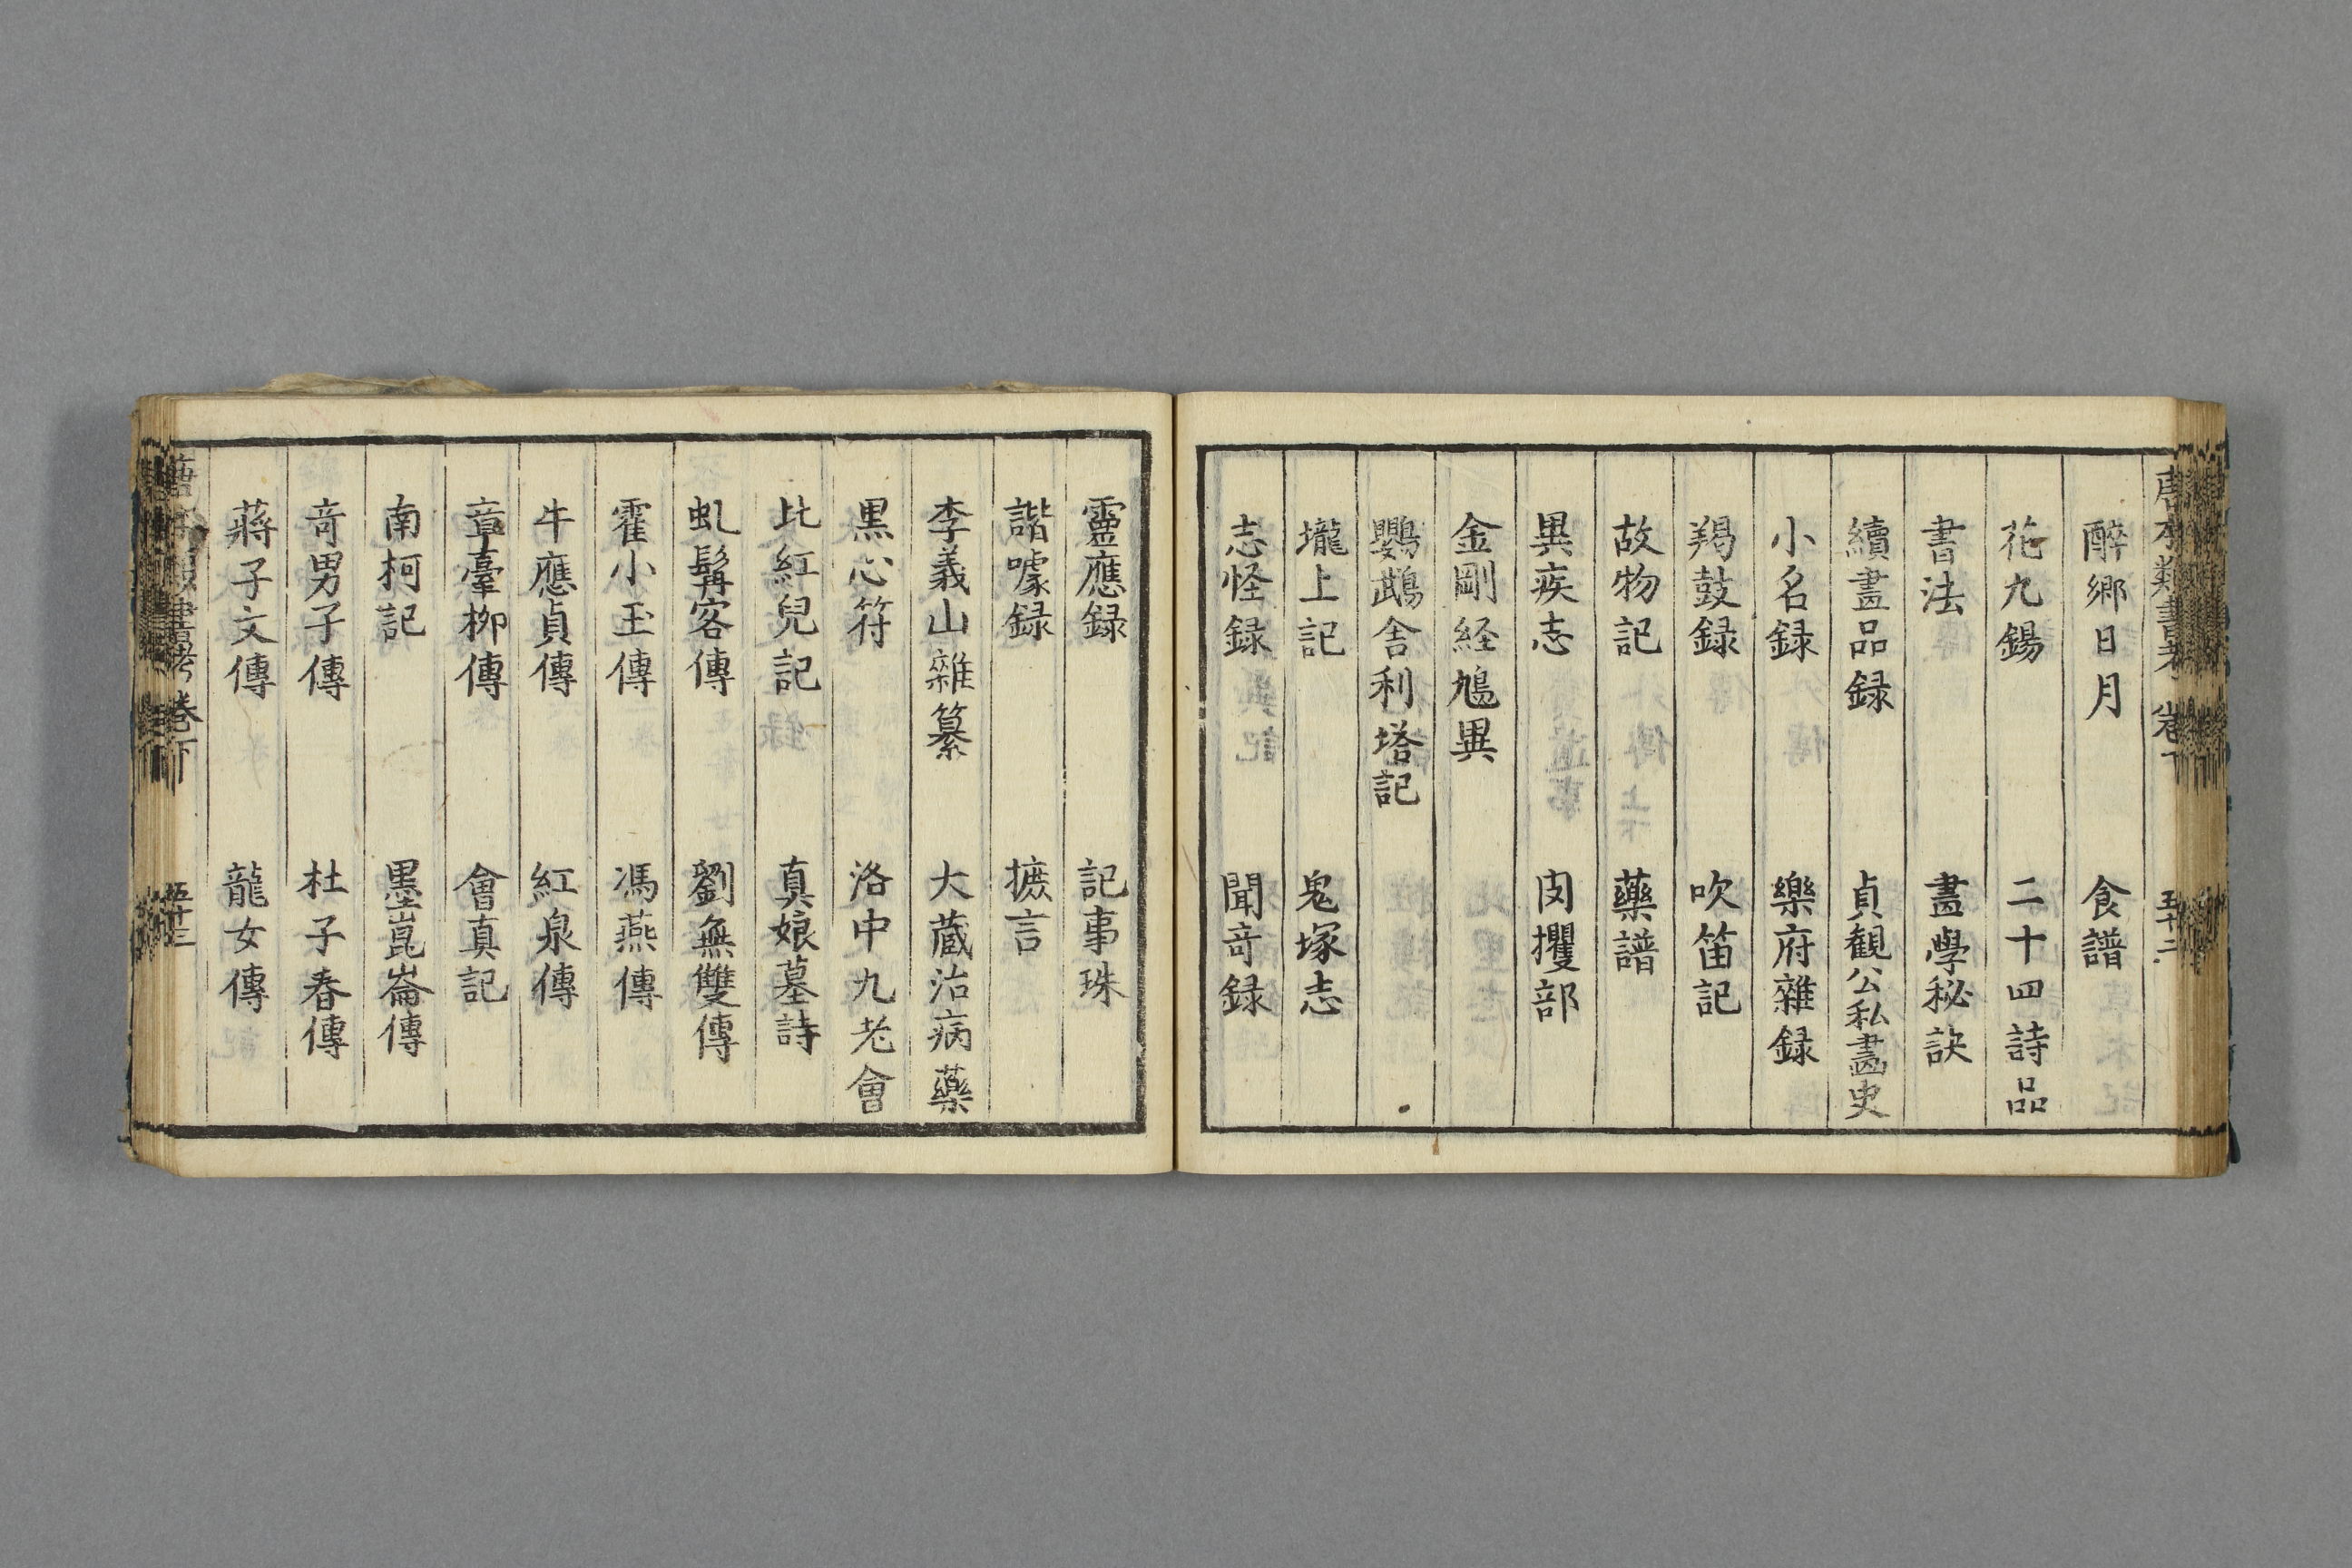 唐本類書考 卷下 五十二
醉鄉日月 食譜
花九錫 二十四詩品
書法 畫學秘訣
續畫品録 貞観公私畫史
小名録 樂府雜録
羯鼓録 吹笛記
故物記 藥譜
異疾志 肉攫部
金剛経鳩異
鸚鵡舎利塔記
壠上記 鬼塚志
志怪録 聞奇録
靈應録 記事珠
諧噱録 摭言
李義山雜纂 大蔵治病藥
黒心符 洛中九老會
比紅兒記 真娘墓詩
虬髯客傳 劉無雙傳
霍小玉傳 馮燕傳
牛應貞傳 紅泉傳
章臺柳傳 會真記
南柯記 墨崑崙傳
奇男子傳 杜子春傳
蔣子文傳 龍女傳
書考 卷下 五十三